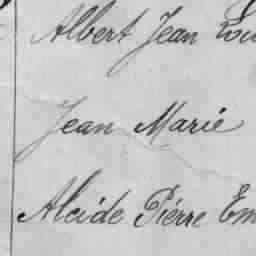 Albert Jean Lou
Jean Marie
Alcide Pierre Em